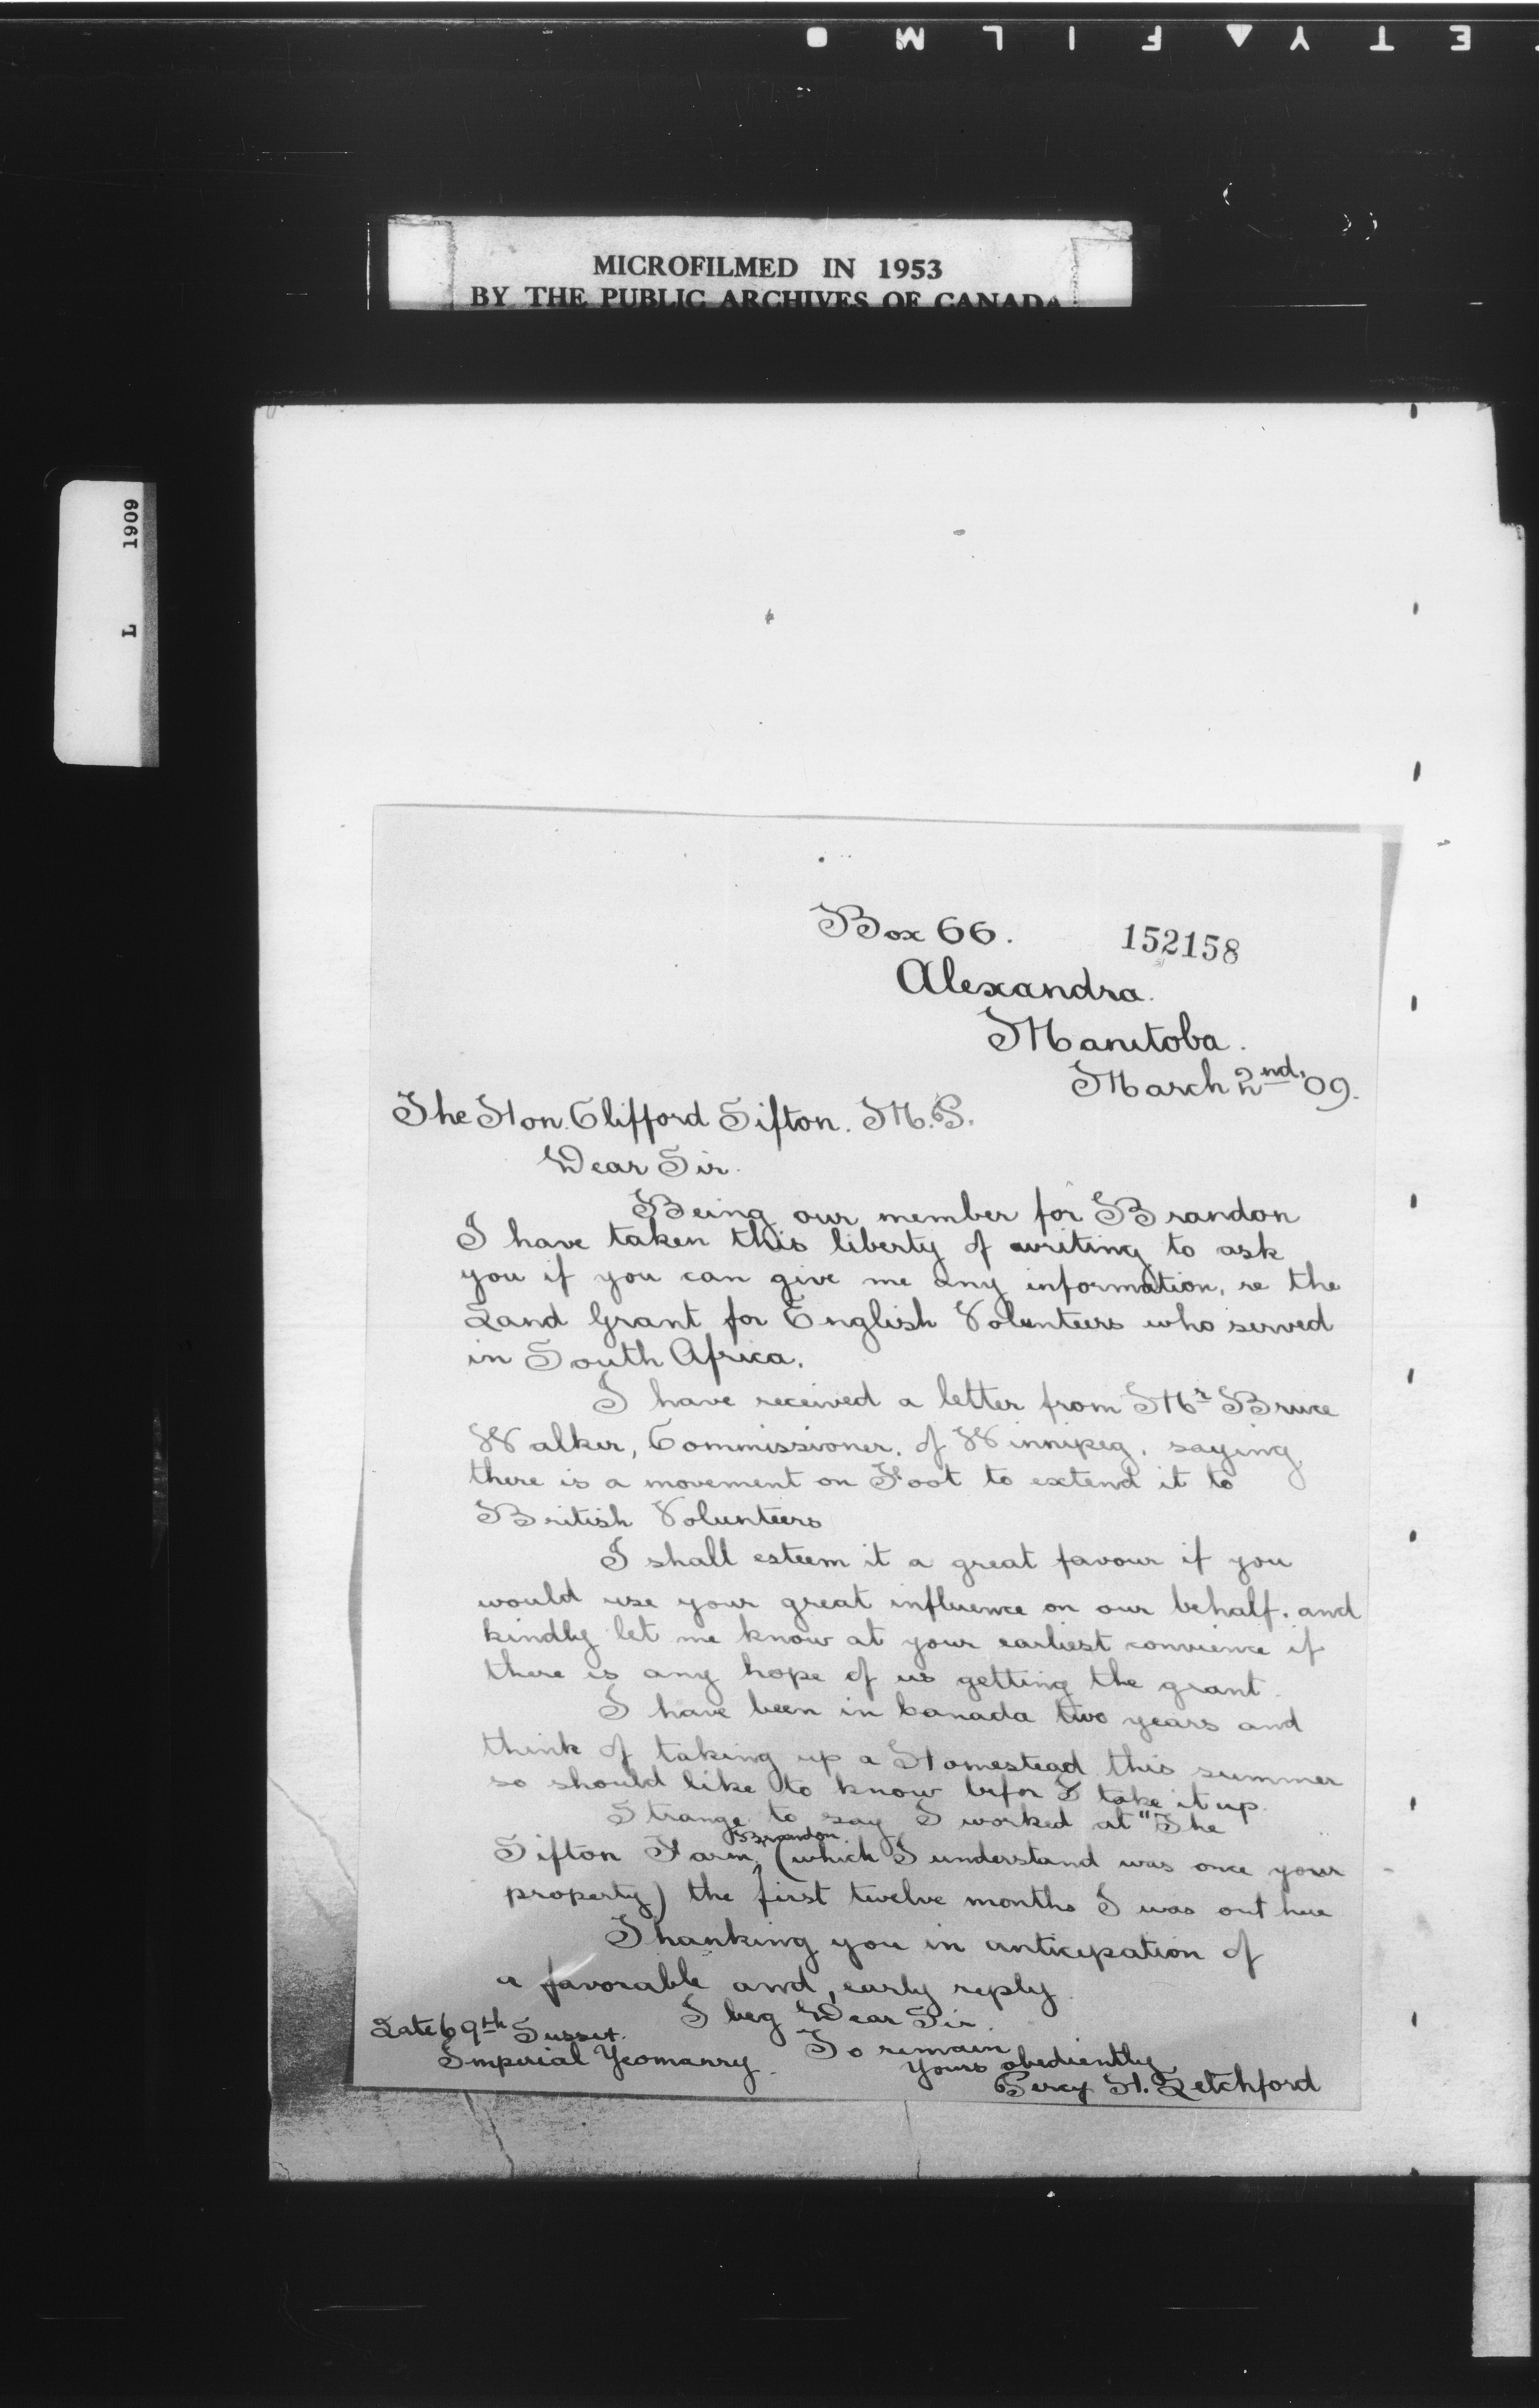 E T Y ▲ F I L M ●
MICROFILMED IN 1953
BY THE PUBLIC ARCHIVES OF CANADA
L 1909
Box 66. 152158
Alexandra.
Manitoba.
March 2nd, 09.
The Hon. Clifford Sifton. M.P.
Dear Sir.
Being our member for Brandon
I have taken this liberty of writing to ask
you if you can give me any information, re the
Land Grant for English Volunteers who served
in South Africa.
I have received a letter from Mr Bruce
Walker, Commissioner. of Winnipeg. saying
there is a movement on Foot to extend it to
British Volunteers
I shall esteem it a great favour if you
would use your great influence on our behalf. and
kindly let me know at your earliest convience if
there is any hope of us getting the grant.
I have been in Canada two years and
think of taking up a Homestead this summer
so should like to know befor I take it up.
Strange to say I worked at "The
Brandon
Sifton Farm, (which I understand was once your
property) the first twelve months I was out here
Thanking you in anticipation of
a favorable and early reply.
I beg Dear Sir.
To remain
Yours obediently
Percy H. Letchford
Late 69th Sussex.
Imperial Yeomanry.